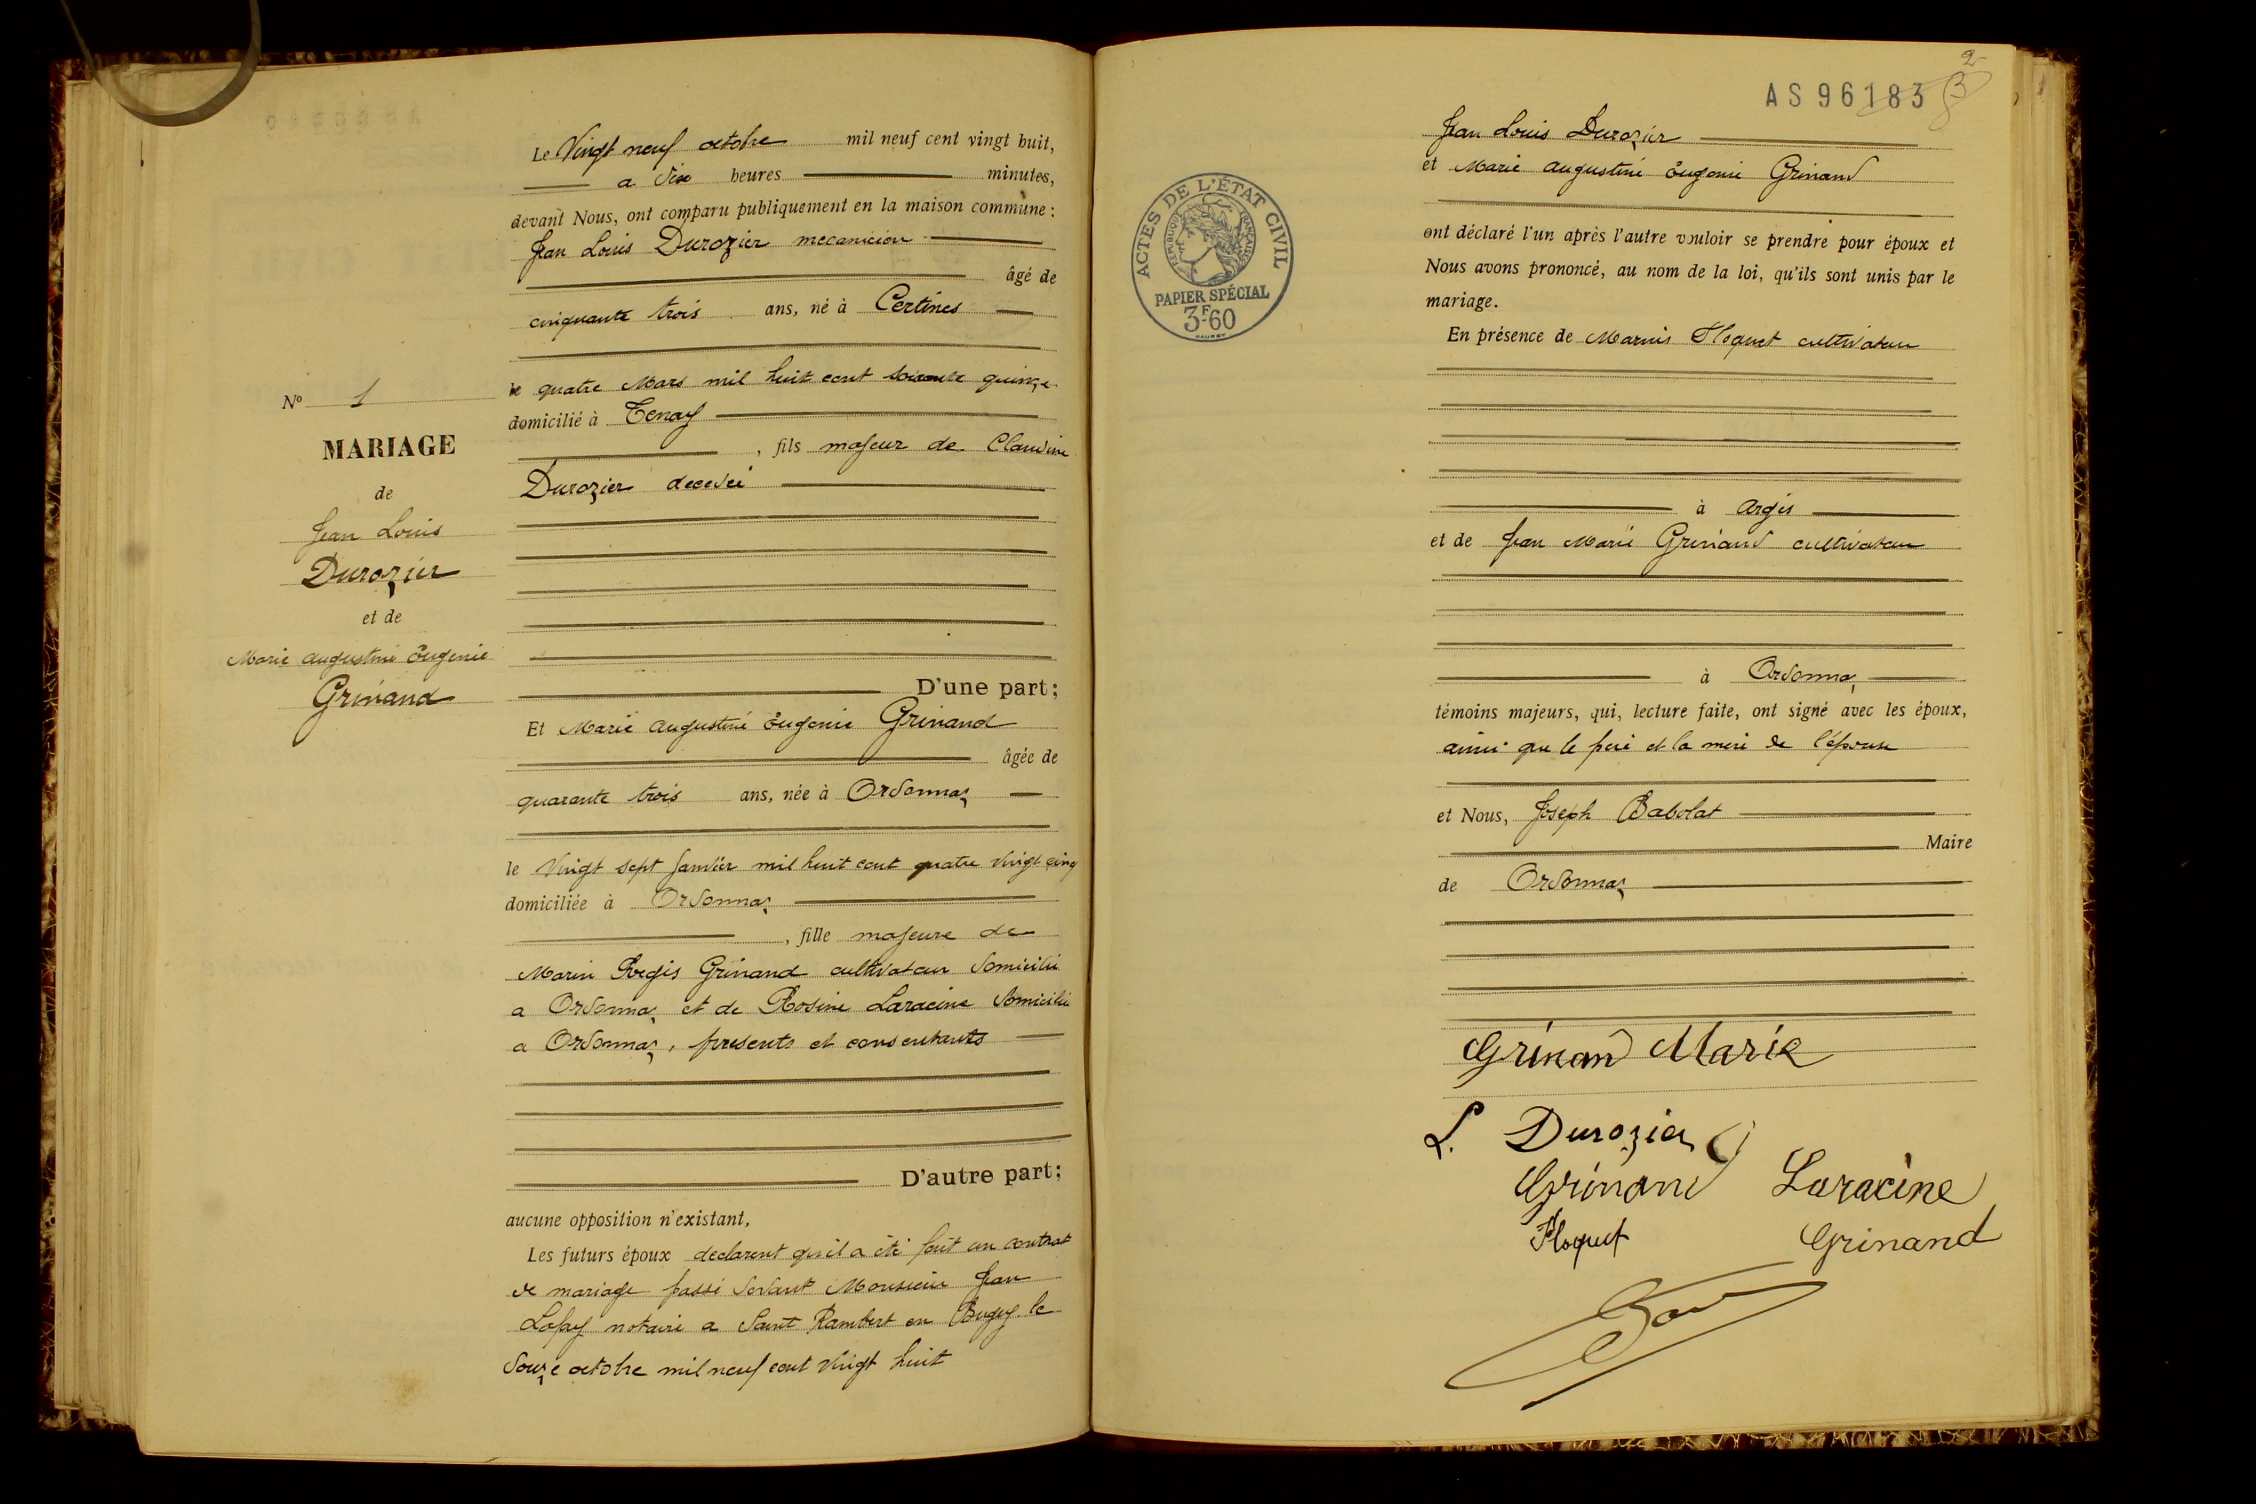 Le Vingt neuf octobre mil neuf cent vingt huit,
a dix heures minutes,
devant Nous, ont comparu publiquement en la maison commune :
Jean Louis Durozier mecanicien
âgé de
cinquante trois ans, né à Certines
le quatre Mars mil huit cent soixante quinze
domicilié à Tenay
, fils majeur de Claudine
Durozier decedée
D'une part ;
Et Marie Augustine Eugenie Grinand
âgée de
quarante trois ans, née à Ordonnaz
le Vingt sept Janvier mil huit cent quatre vingt cinq
domiciliée à Ordonnaz
, fille majeure de
Marin Regis Grinand cultivateur domicilié
a Ordonnaz et de Rosine Laracine domiciliée
a Ordonnaz, presents et consentants
D'autre part ;
aucune opposition n'existant,
Les futurs époux declarent qu'il a été fait un contrat
de mariage passé devant Monsieur Jean
Lafay notaire a Saint Rambert en Bugey le
douze octobre mil neuf cent vingt huit
N° 1
MARIAGE
de
Jean Louis
Durozier
et de
Marie Augustine Eugenie
Grinand
2
AS 96183 3
ACTES DE L'ÉTAT CIVIL
RÉPUBLIQUE FRANÇAISE
PAPIER SPÉCIAL
3F60
Jean Louis Durozier
et Marie Augustine Eugenie Grinand
ont déclaré l'un après l'autre vouloir se prendre pour époux et
Nous avons prononcé, au nom de la loi, qu'ils sont unis par le
mariage.
En présence de Marius Floquet cultivateur
à Argis
et de Jean Marie Grinand cultivateur
à Ordonnaz
témoins majeurs, qui, lecture faite, ont signé avec les époux,
ainsi que le père et la mère de l'épouse
et Nous, Joseph Babolat
Maire
de Ordonnaz
Grinand Marie
L. Durozier
Grinand Laracine
Floquet Grinand